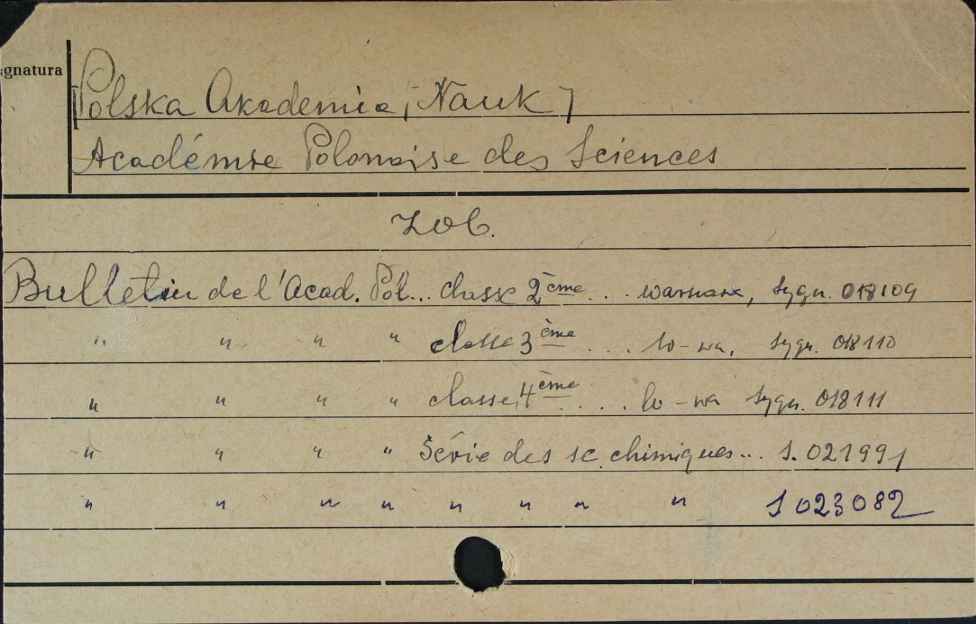 gnatura
[Polska Akademia, Nauk]
Académie Polonaise des Sciences
Zob.
Bulletin de l'Acad. Pol... classe 2ème... Warszawa, sygn. 018109
" " " " classe 3ème.... W-wa, sygn. 018110
" " " " classe 4ème.... W-wa sygn. 018111
" " " " Série des sc. chimiques... S. 021991
" " " " " " " " S 023082